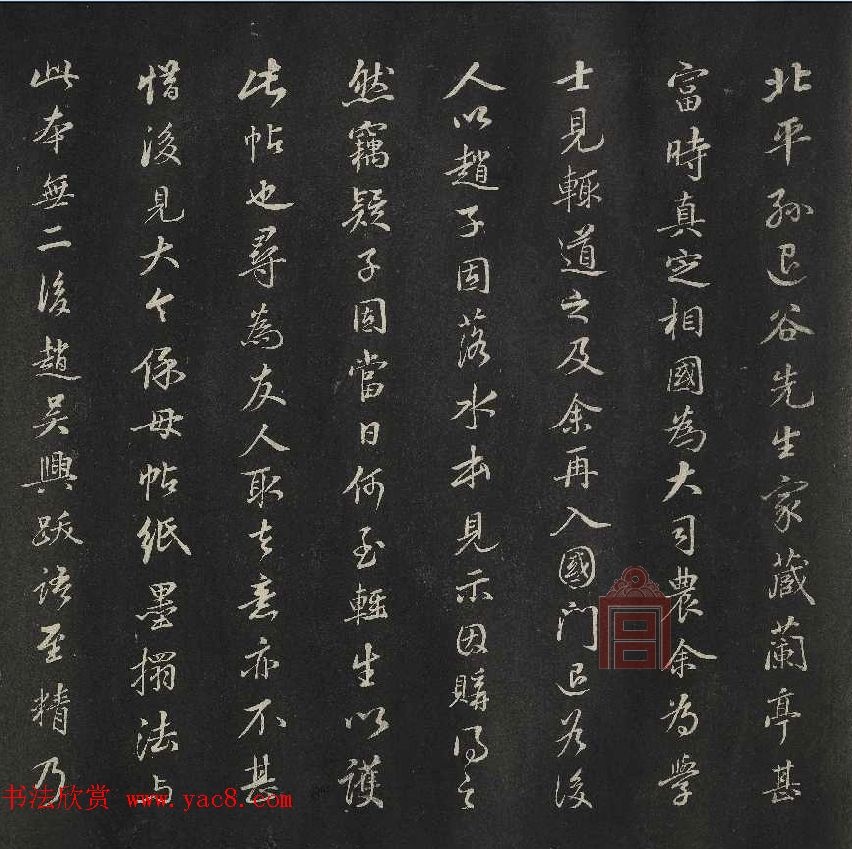 北平孫退谷先生家藏蘭亭甚
富時真定相國為大司農余為學
士見輒道之及余再入國門退谷後
人以趙子固落水本見示因購得之
然竊疑子固當日何至輕生以護
此帖也尋為友人取去意亦不甚
惜後見大令保母帖紙墨搨法與
此本無二後趙吳興跋語至精乃
书法欣赏 www.yac8.com